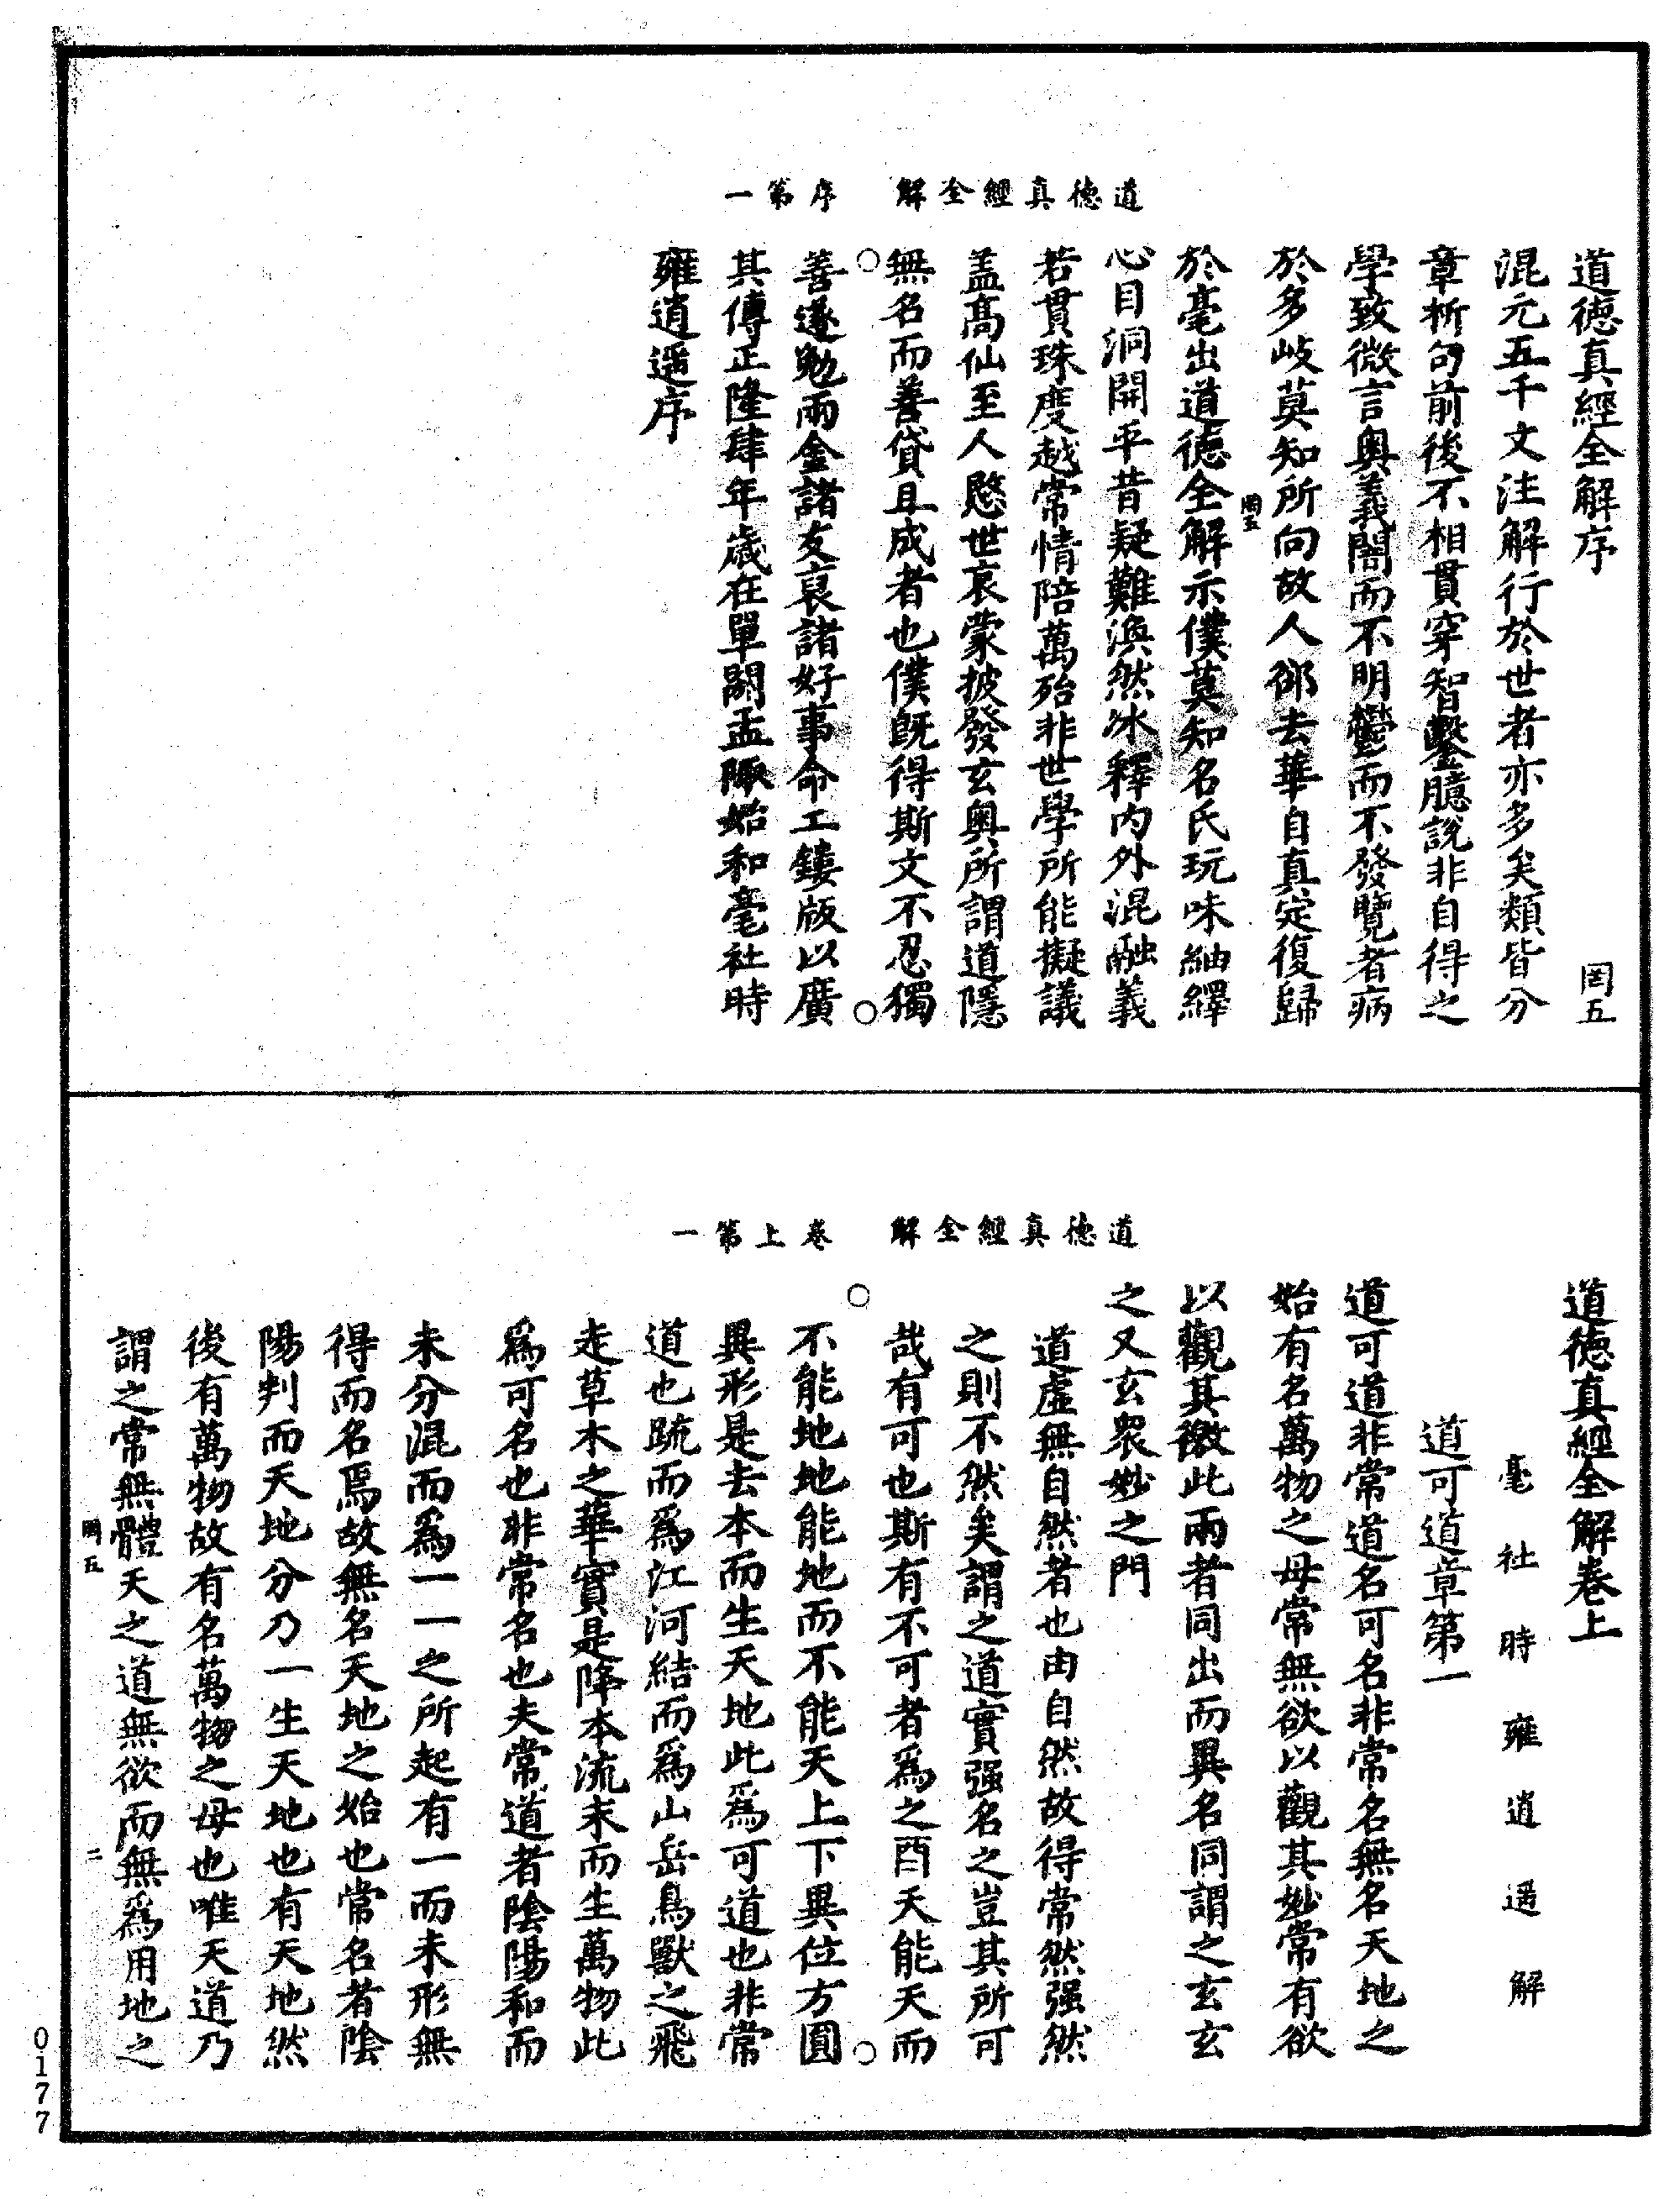 道德真經全解　序第一
道德真經全解序　罔五
混元五千文注解行於世者亦多矣類皆分
章析句前後不相貫穿智鑿臆說非自得之
學致微言奧義闇而不明鬱而不發覽者病
於多岐莫知所向故人郤去華自真定復歸
罔五
於亳出道德全解示僕莫知名氏玩味紬繹
心目洞開平昔疑難渙然冰釋内外混融義
若貫珠度越常情陪萬殆非世學所能擬議
盖高仙至人愍世哀蒙披發玄奧所謂道隱
無名而善貸且成者也僕既得斯文不忍獨
善遂勉兩金諸友裒諸好事命工鏤版以廣
其傳正隆肆年歲在單閼孟陬始和亳社時
雍逍遥序
道德真經全解　卷上第一
道德真經全解卷上
亳社時雍逍遥解
道可道章第一
道可道非常道名可名非常名無名天地之
始有名萬物之母常無欲以觀其妙常有欲
以觀其徼此兩者同出而異名同謂之玄玄
之又玄衆妙之門
道虛無自然者也由自然故得常然强然
之則不然矣謂之道實强名之豈其所可
哉有可也斯有不可者爲之酉天能天而
不能地地能地而不能天上下異位方圓
異形是去本而生天地此爲可道也非常
道也䟽而爲江河結而爲山岳鳥獸之飛
走草木之華實是降本流末而生萬物此
爲可名也非常名也夫常道者陰陽和而
未分混而爲一一之所起有一而未形無
得而名焉故無名天地之始也常名者陰
陽判而天地分乃一生天地也有天地然
後有萬物故有名萬物之母也唯天道乃
謂之常無體天之道無欲而無爲用地之
罔五　二
0177